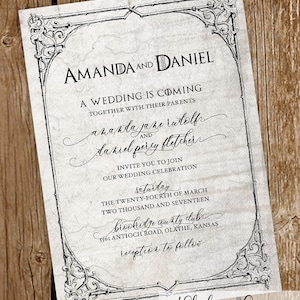 AMANDA AND DANIEL
A WEDDING IS COMING
TOGETHER WITH THEIR PARENTS
amanda jane rudolf
AND
daniel percy fletcher
INVITE YOU TO JOIN
OUR WEDDING CELEBRATION
saturday
THE TWENTY-FOURTH OF MARCH
TWO THOUSAND AND SEVENTEEN
brookridge county club
ANTIOCH ROAD, OLATHE, KANSAS
reception to follow